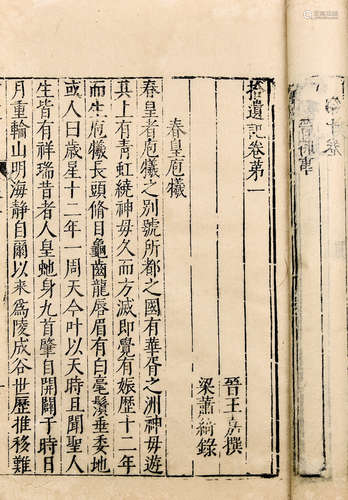 拾遺記卷第一
晉王嘉撰
梁蕭綺錄
春皇庖犧
春皇者庖犧之別號所都之國有華胥之洲神母遊
其上有青虹繞神母久而方滅即覺有娠歷十二年
而生庖犧長頭修目龜齒龍唇眉有白毫鬚垂委地
或人曰歲星十二年一周天今叶以天時且聞聖人
生皆有祥瑞昔者人皇虵身九首肇自開闢于時日
月重輪山明海靜自爾以來為陵成谷世歷推移難